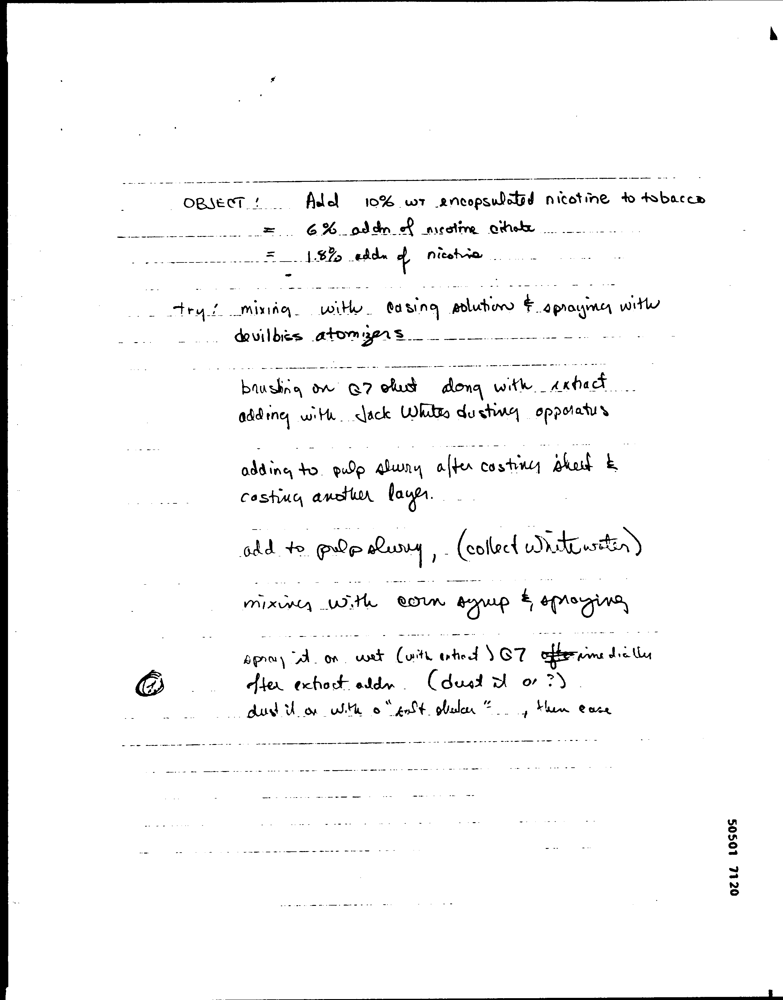 OBJECT! Add 10% wt encapsulated nicotine to tobacco
= 6% addn of nicotine citrate
= 1.8% addn of nicotine
try! mixing with casing solution & spraying with
devilbiss atomizers
brushing on G7 sheet along with extract
adding with Jack Whites dusting apparatus
adding to pulp slurry after casting sheet &
casting another layer.
add to pulp slurry, (collect white water)
mixing with corn syrup & spraying
spray it on wet (with extract) G7 immediatley
after extract addn. (dust it on?)
dust it on with a "salt shaker", then case
50501 7120